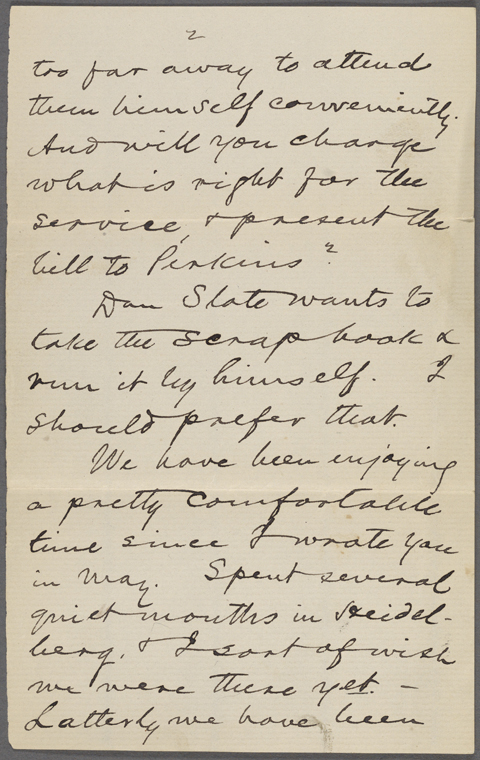 2
too far away to attend
them himself conveniently.
And will you charge
what is right for the
service, & present the
bill to Perkins?
Dan Slote wants to
take the scrap book &
run it by himself. I
should prefer that.
We have been enjoying
a pretty comfortable
time since I wrote you
in May. Spent several
quiet months in Heidel-
berg, & I sort of wish
we were there yet. —
Latterly we have been